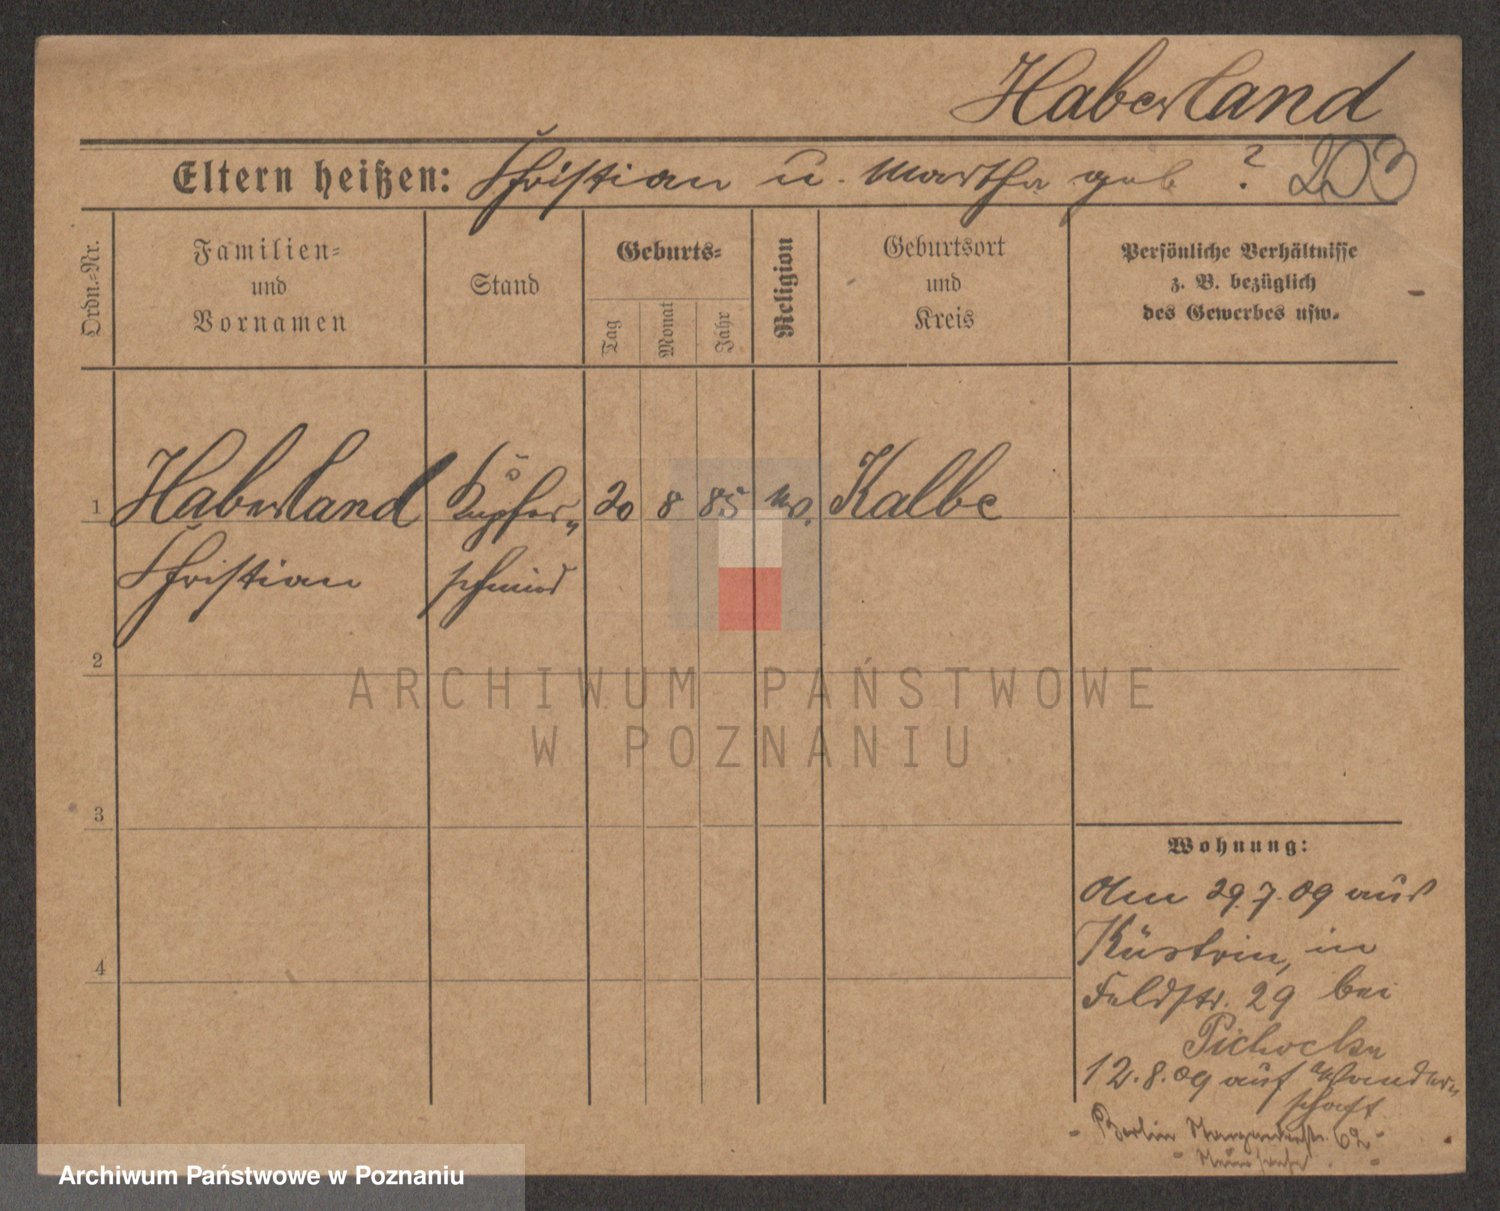 Haberland
Eltern heißen: Christian u. Martha geb ?
Ordn.-Nr.
Familien-
und
Vornamen
Stand
Geburts-
Tag
Monat
Jahr
Religion
Geburtsort
und
Kreis
Persönliche Verhältnisse
z. B. bezüglich
des Gewerbes usw.
1 Haberland Kupfer- 20 8 85 Kalbe
Christian schmied
2
ARCHIWUM PAŃSTWOWE
W POZNANIU
3
4
Wohnung:
Am 29.7.09 aus
Küstrin, in
Feldstr. 29 bei
12.8.09 auf Wander
schaft
Berlin 62
Archiwum Państwowe w Poznaniu